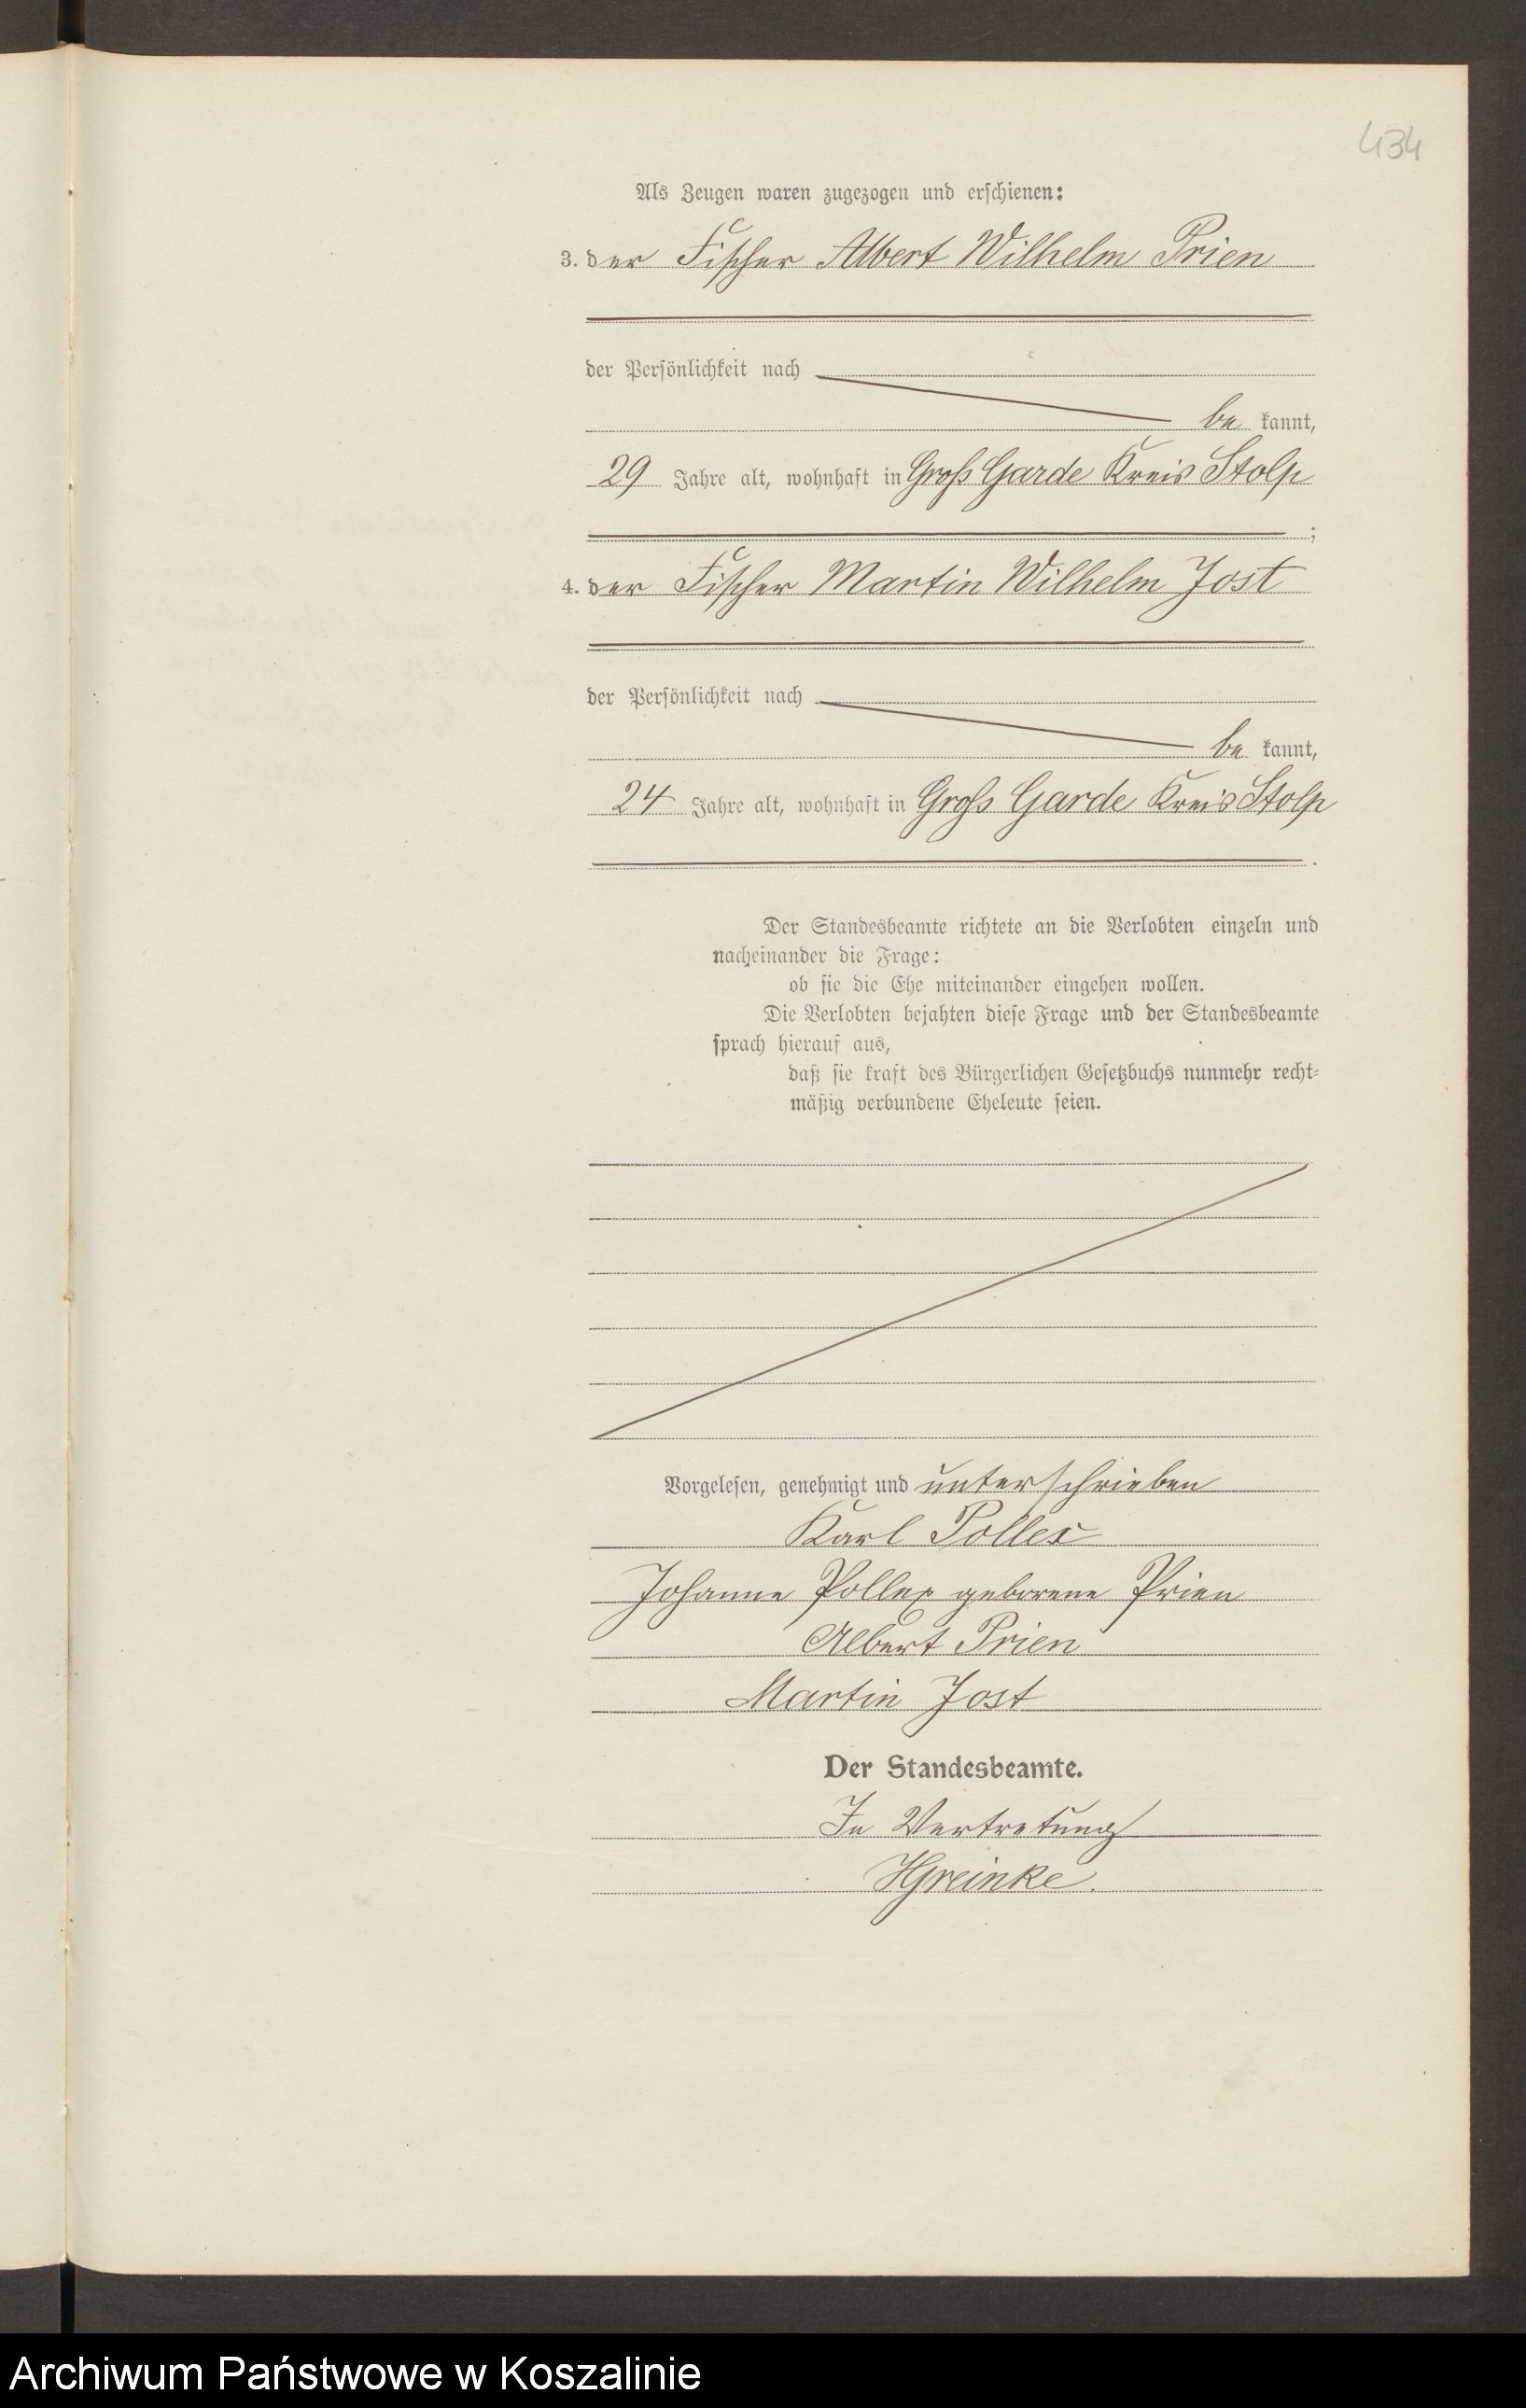 434
Als Zeugen waren zugezogen und erschienen:
3. der Fischer Albert Wilhelm Prien
der Persönlichkeit nach
be kannt,
29 Jahre alt, wohnhaft in Groß Garde Kreis Stolp
;
4. der Fischer Martin Wilhelm Jost
der Persönlichkeit nach
be kannt,
24 Jahre alt, wohnhaft in Groß Garde Kreis Stolp
.
Der Standesbeamte richtete an die Verlobten einzeln und
nacheinander die Frage:
ob sie die Ehe miteinander eingehen wollen.
Die Verlobten bejahten diese Frage und der Standesbeamte
sprach hierauf aus,
daß sie kraft des Bürgerlichen Gesetzbuchs nunmehr recht-
mäßig verbundene Eheleute seien.
Vorgelesen, genehmigt und unterschrieben
Karl Pollex
Johanne Pollex geborene Prien
Albert Prien
Martin Jost
Der Standesbeamte.
In Vertretung
HGreinke.
Archiwum Państwowe w Koszalinie